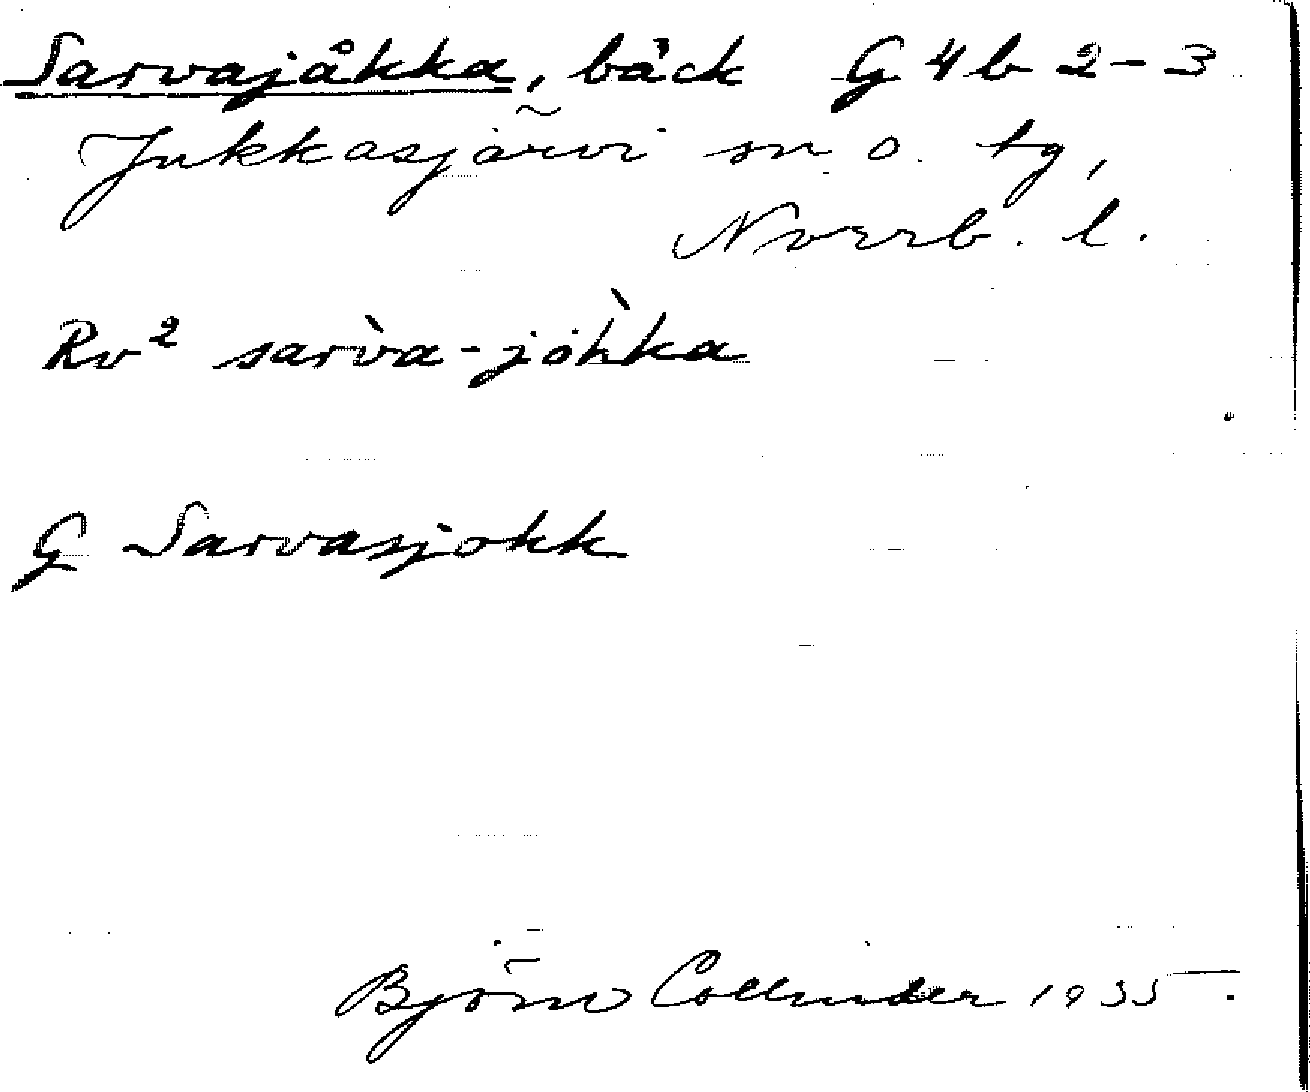 Sarvajåkka, bäck G 4 b 2-3
Jukkasjärvi sn o. tg,
Norrb. l.
Rv² sarv̀a-jòh̀ka
G Sarvasjokk
Björn Collinder 1935.